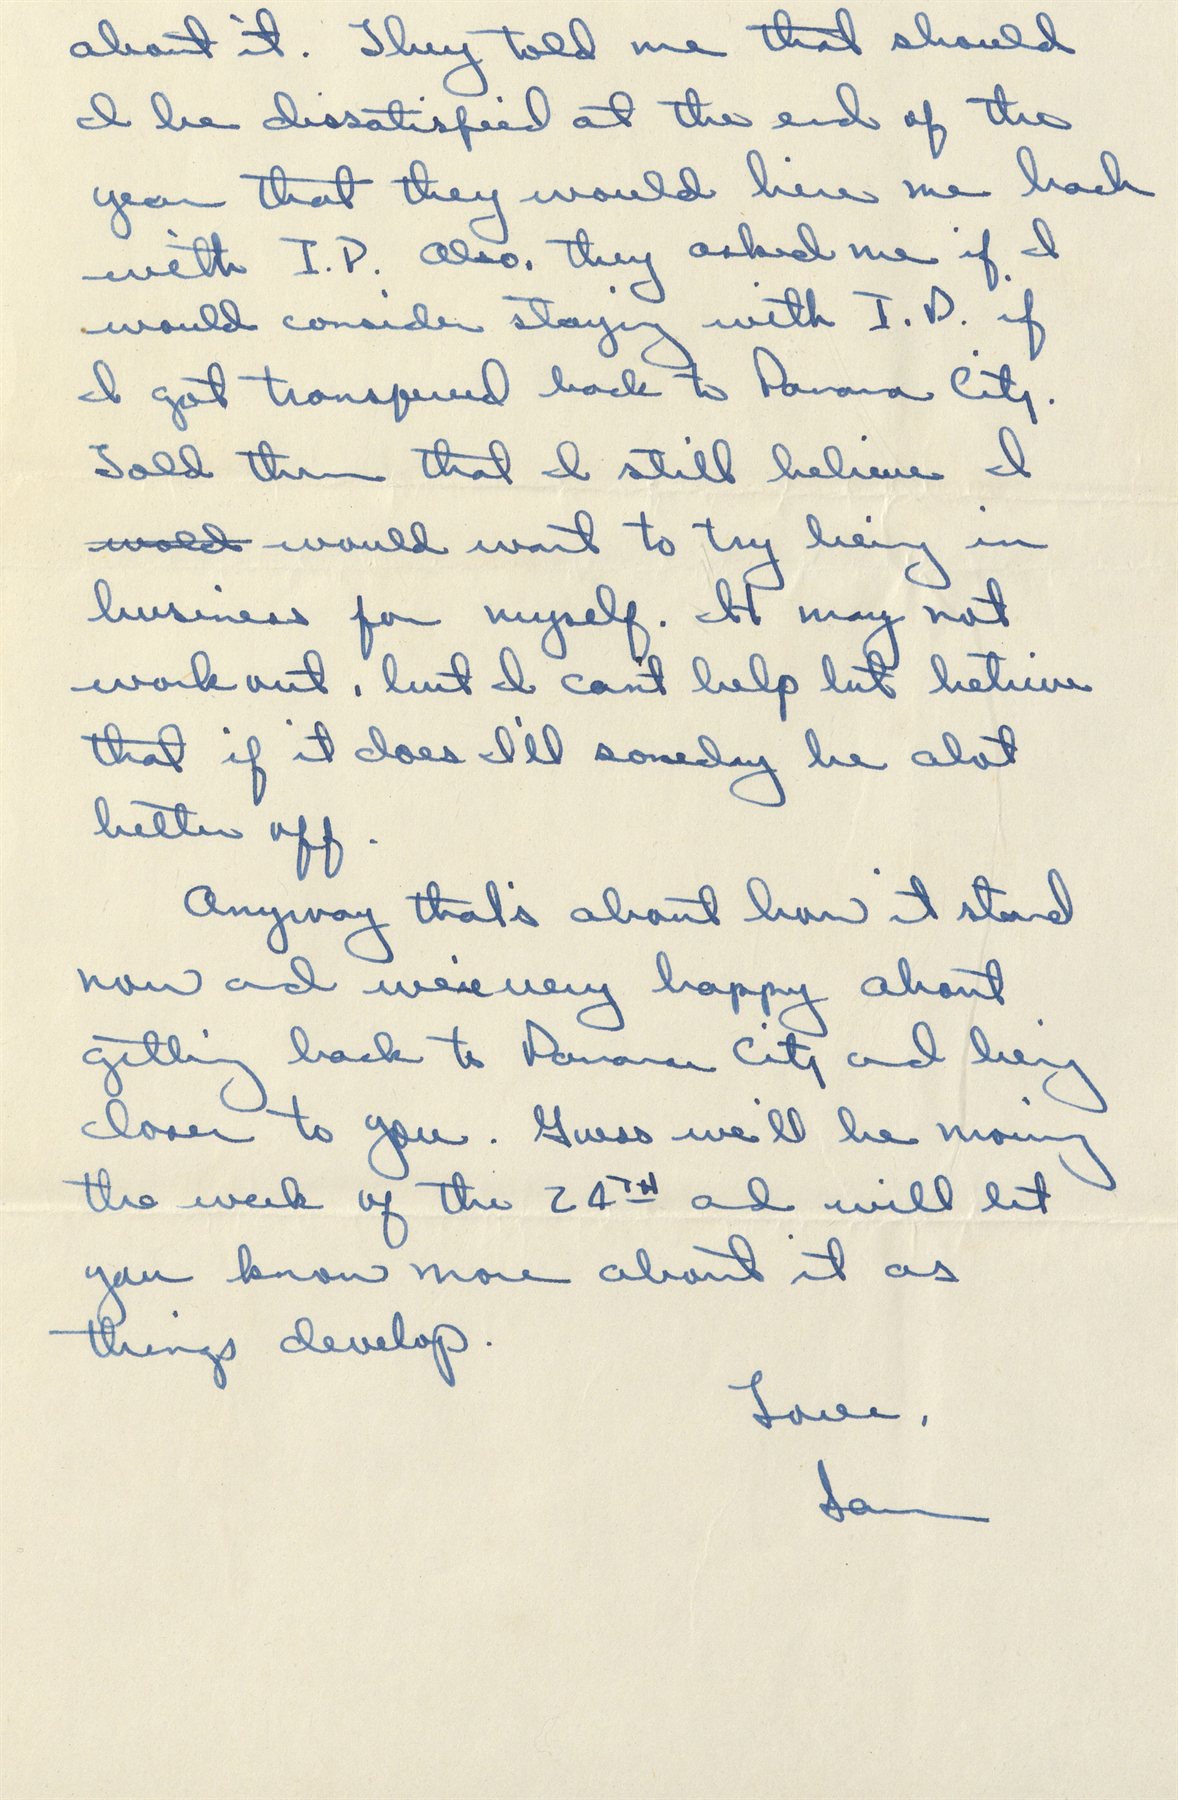 about it. They told me that should
I be dissatisfied at the end of the
year that they would hire me back
with I.P. Also, they asked me if I
would consider staying with I.P. if
I got transferred back to Panama City.
Told them that I still believe I
wold would want to try being in
business for myself. It may not
work out, but I can't help but believe
that if it does I'll someday be alot
better off.
Anyway that's about how it stand
now and we're very happy about
getting back to Panama City and being
closer to you. Guess we'll be moving
the week of the 24TH and will let
you know more about it as
things develop.
Love,
Sam